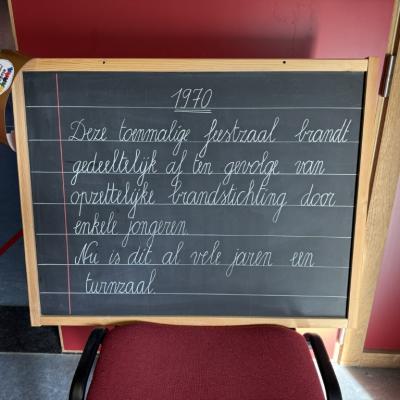 1970
Deze toenmalige feestzaal brandt
gedeeltelijk af ten gevolge van
opzettelijke brandstichting door
enkele jongeren.
Nu is dit al vele jaren een
turnzaal.